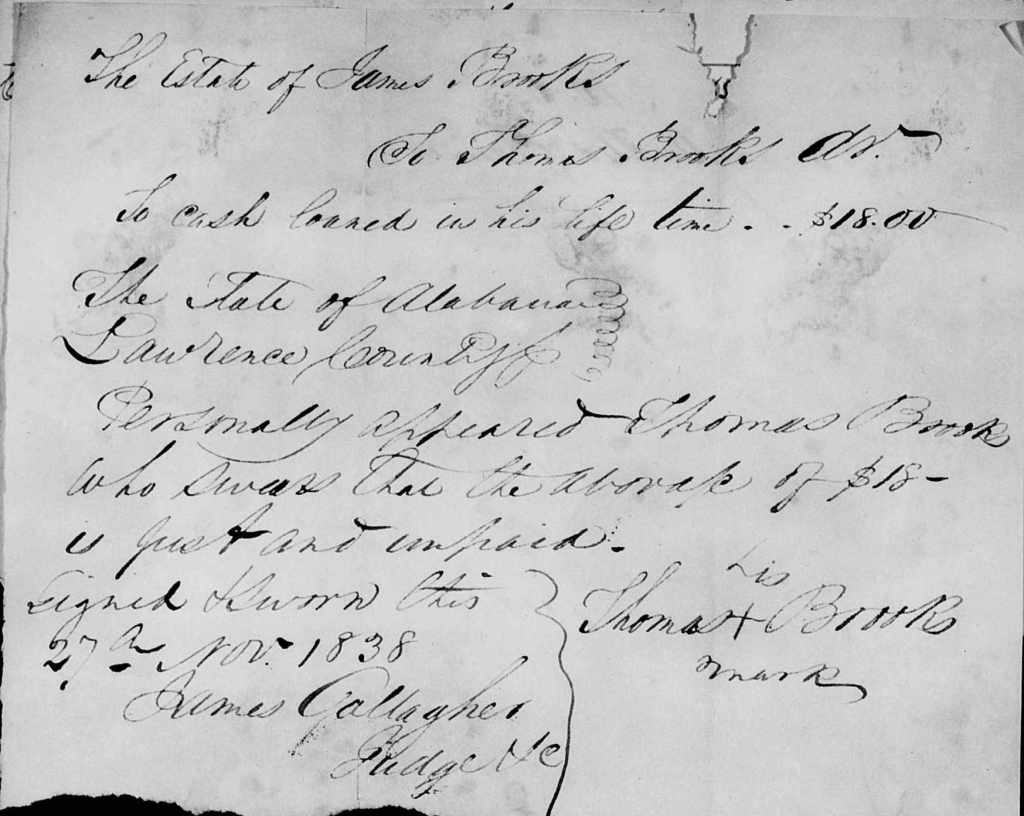 The Estate of James Brooks
To Thomas Brooks Dr.
To cash loaned in his life time . . $18.00
The State of Alabama
Lawrence County
Personally appeared Thomas Brooks
who swears that the above a/c of $18-
is just and unpaid.
Signed & sworn this
27th Nov. 1838
James Gallagher
Judge &c
his
Thomas + Brooks
mark